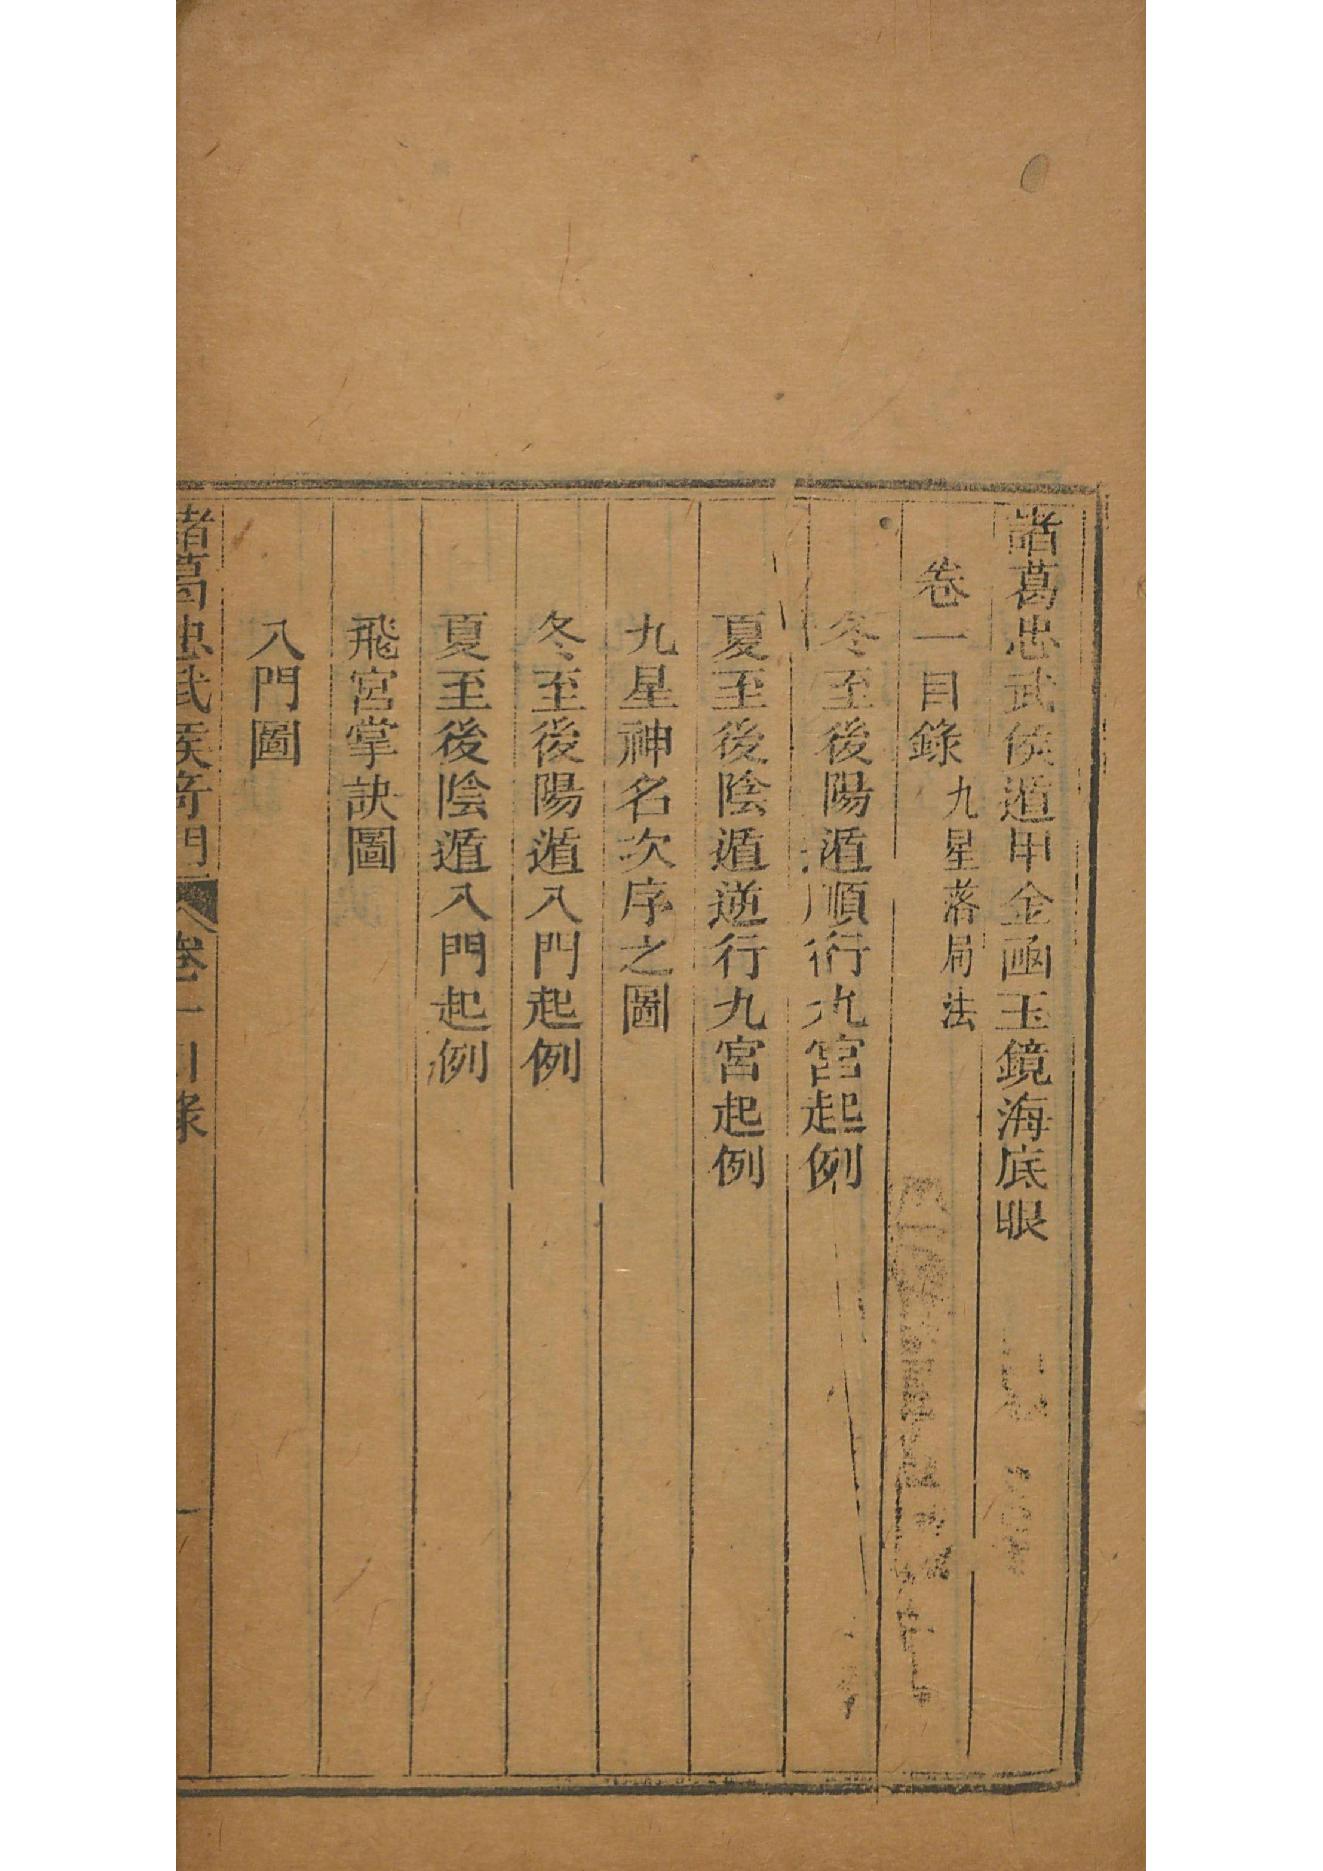 諸葛忠武侯遁甲金函玉鏡海底眼
卷一目錄 九星落局法
冬至後陽遁順行九宮起例
夏至後陰遁逆行九宮起例
九星神名次序之圖
冬至後陽遁八門起例
夏至後陰遁八門起例
飛宮掌訣圖
八門圖
諸葛忠武侯奇門 卷一目錄 一